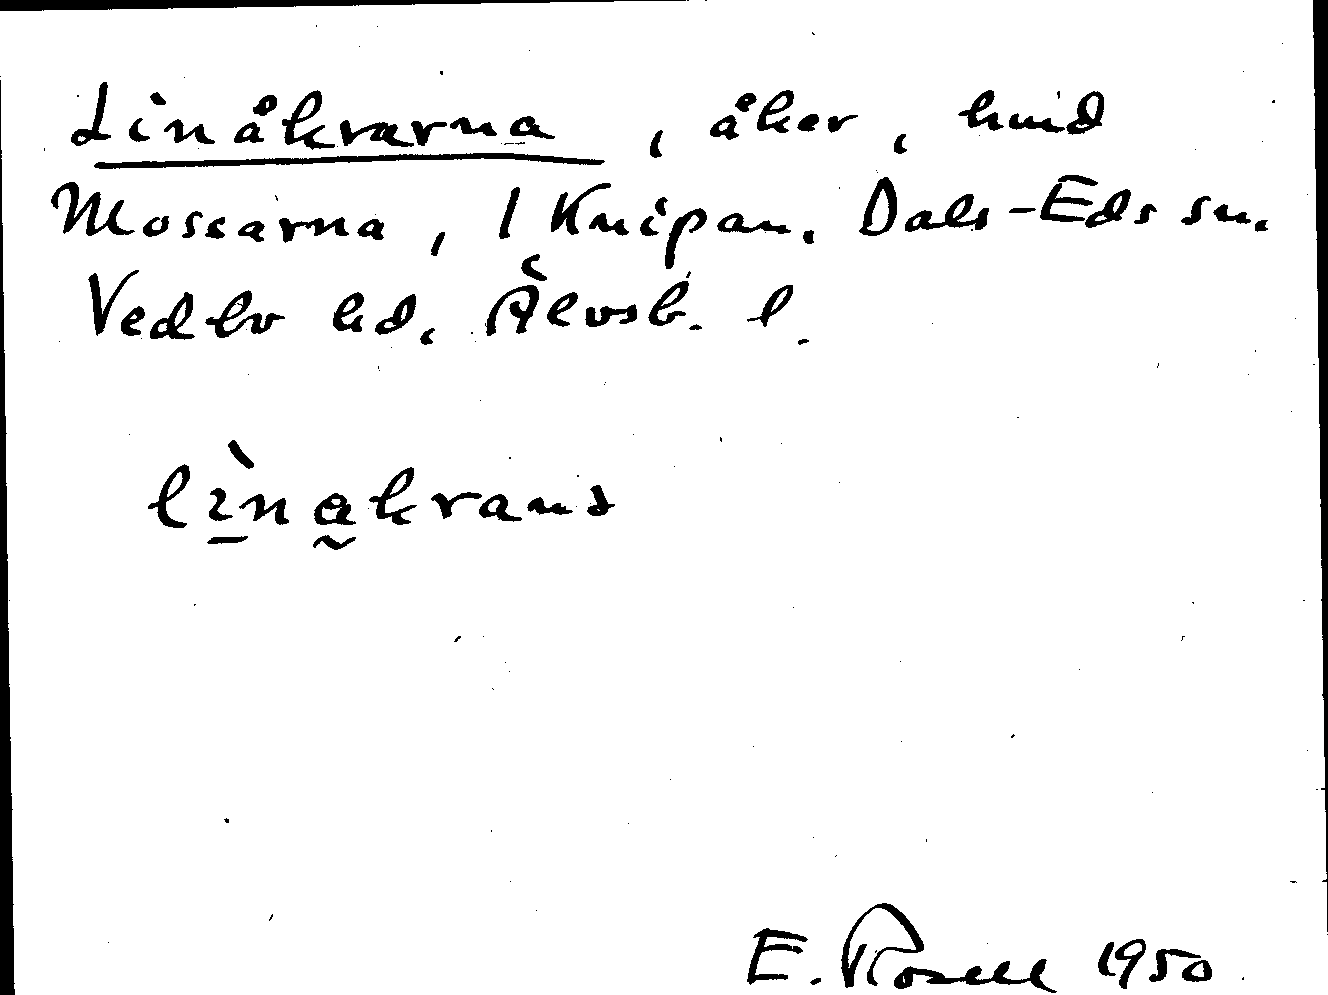 Linåkrarna, åker, hmd
Mossarna, 1 Knipan. Dals-Eds sn.
Vedbo hd. Älvsb. l.
lìnakrans
E. Rosell 1950